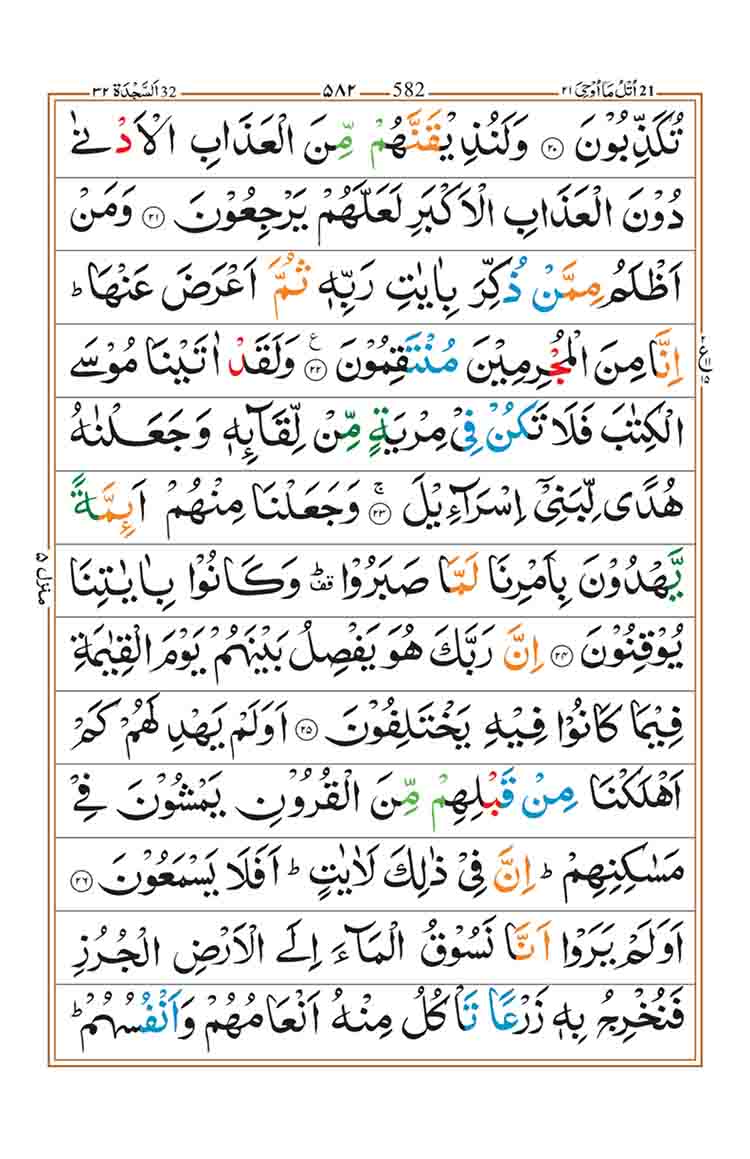 اُتْلُ مَآ اُوْحِیَ ٢١ 21 582 ٥٨٢ اَلسَّجْدَة ٣٢ 32
تُكَذِّبُوْنَ ﴿٢٠﴾ وَلَنُذِیْقَنَّهُمْ مِّنَ الْعَذَابِ الْاَدْنٰی
دُوْنَ الْعَذَابِ الْاَكْبَرِ لَعَلَّهُمْ یَرْجِعُوْنَ ﴿٢١﴾ وَمَنْ
اَظْلَمُ مِمَّنْ ذُكِّرَ بِاٰیٰتِ رَبِّهٖ ثُمَّ اَعْرَضَ عَنْهَا ؕ
اِنَّا مِنَ الْمُجْرِمِیْنَ مُنْتَقِمُوْنَ ﴿٢٢﴾ ع وَلَقَدْ اٰتَیْنَا مُوْسَی
الْكِتٰبَ فَلَا تَكُنْ فِیْ مِرْیَةٍ مِّنْ لِّقَآئِهٖ وَجَعَلْنٰهُ
هُدًی لِّبَنِیْۤ اِسْرَآءِیْلَ ﴿٢٣﴾ ۚ وَجَعَلْنَا مِنْهُمْ اَئِمَّةً
یَّهْدُوْنَ بِاَمْرِنَا لَمَّا صَبَرُوْا ؕ قف وَكَانُوْا بِاٰیٰتِنَا
یُوْقِنُوْنَ ﴿٢٤﴾ اِنَّ رَبَّكَ هُوَ یَفْصِلُ بَیْنَهُمْ یَوْمَ الْقِیٰمَةِ
فِیْمَا كَانُوْا فِیْهِ یَخْتَلِفُوْنَ ﴿٢٥﴾ اَوَلَمْ یَهْدِ لَهُمْ كَمْ
اَهْلَكْنَا مِنْ قَبْلِهِمْ مِّنَ الْقُرُوْنِ یَمْشُوْنَ فِیْ
مَسٰكِنِهِمْ ؕ اِنَّ فِیْ ذٰلِكَ لَاٰیٰتٍ ؕ اَفَلَا یَسْمَعُوْنَ ﴿٢٦﴾
اَوَلَمْ یَرَوْا اَنَّا نَسُوْقُ الْمَآءَ اِلَی الْاَرْضِ الْجُرُزِ
فَنُخْرِجُ بِهٖ زَرْعًا تَاْكُلُ مِنْهُ اَنْعَامُهُمْ وَاَنْفُسُهُمْ ؕ
منزل ٥